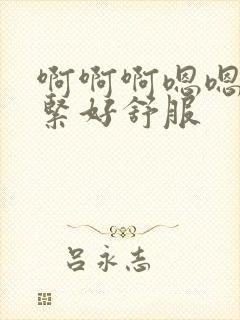 啊啊啊嗯嗯
紧好舒服
吕永志